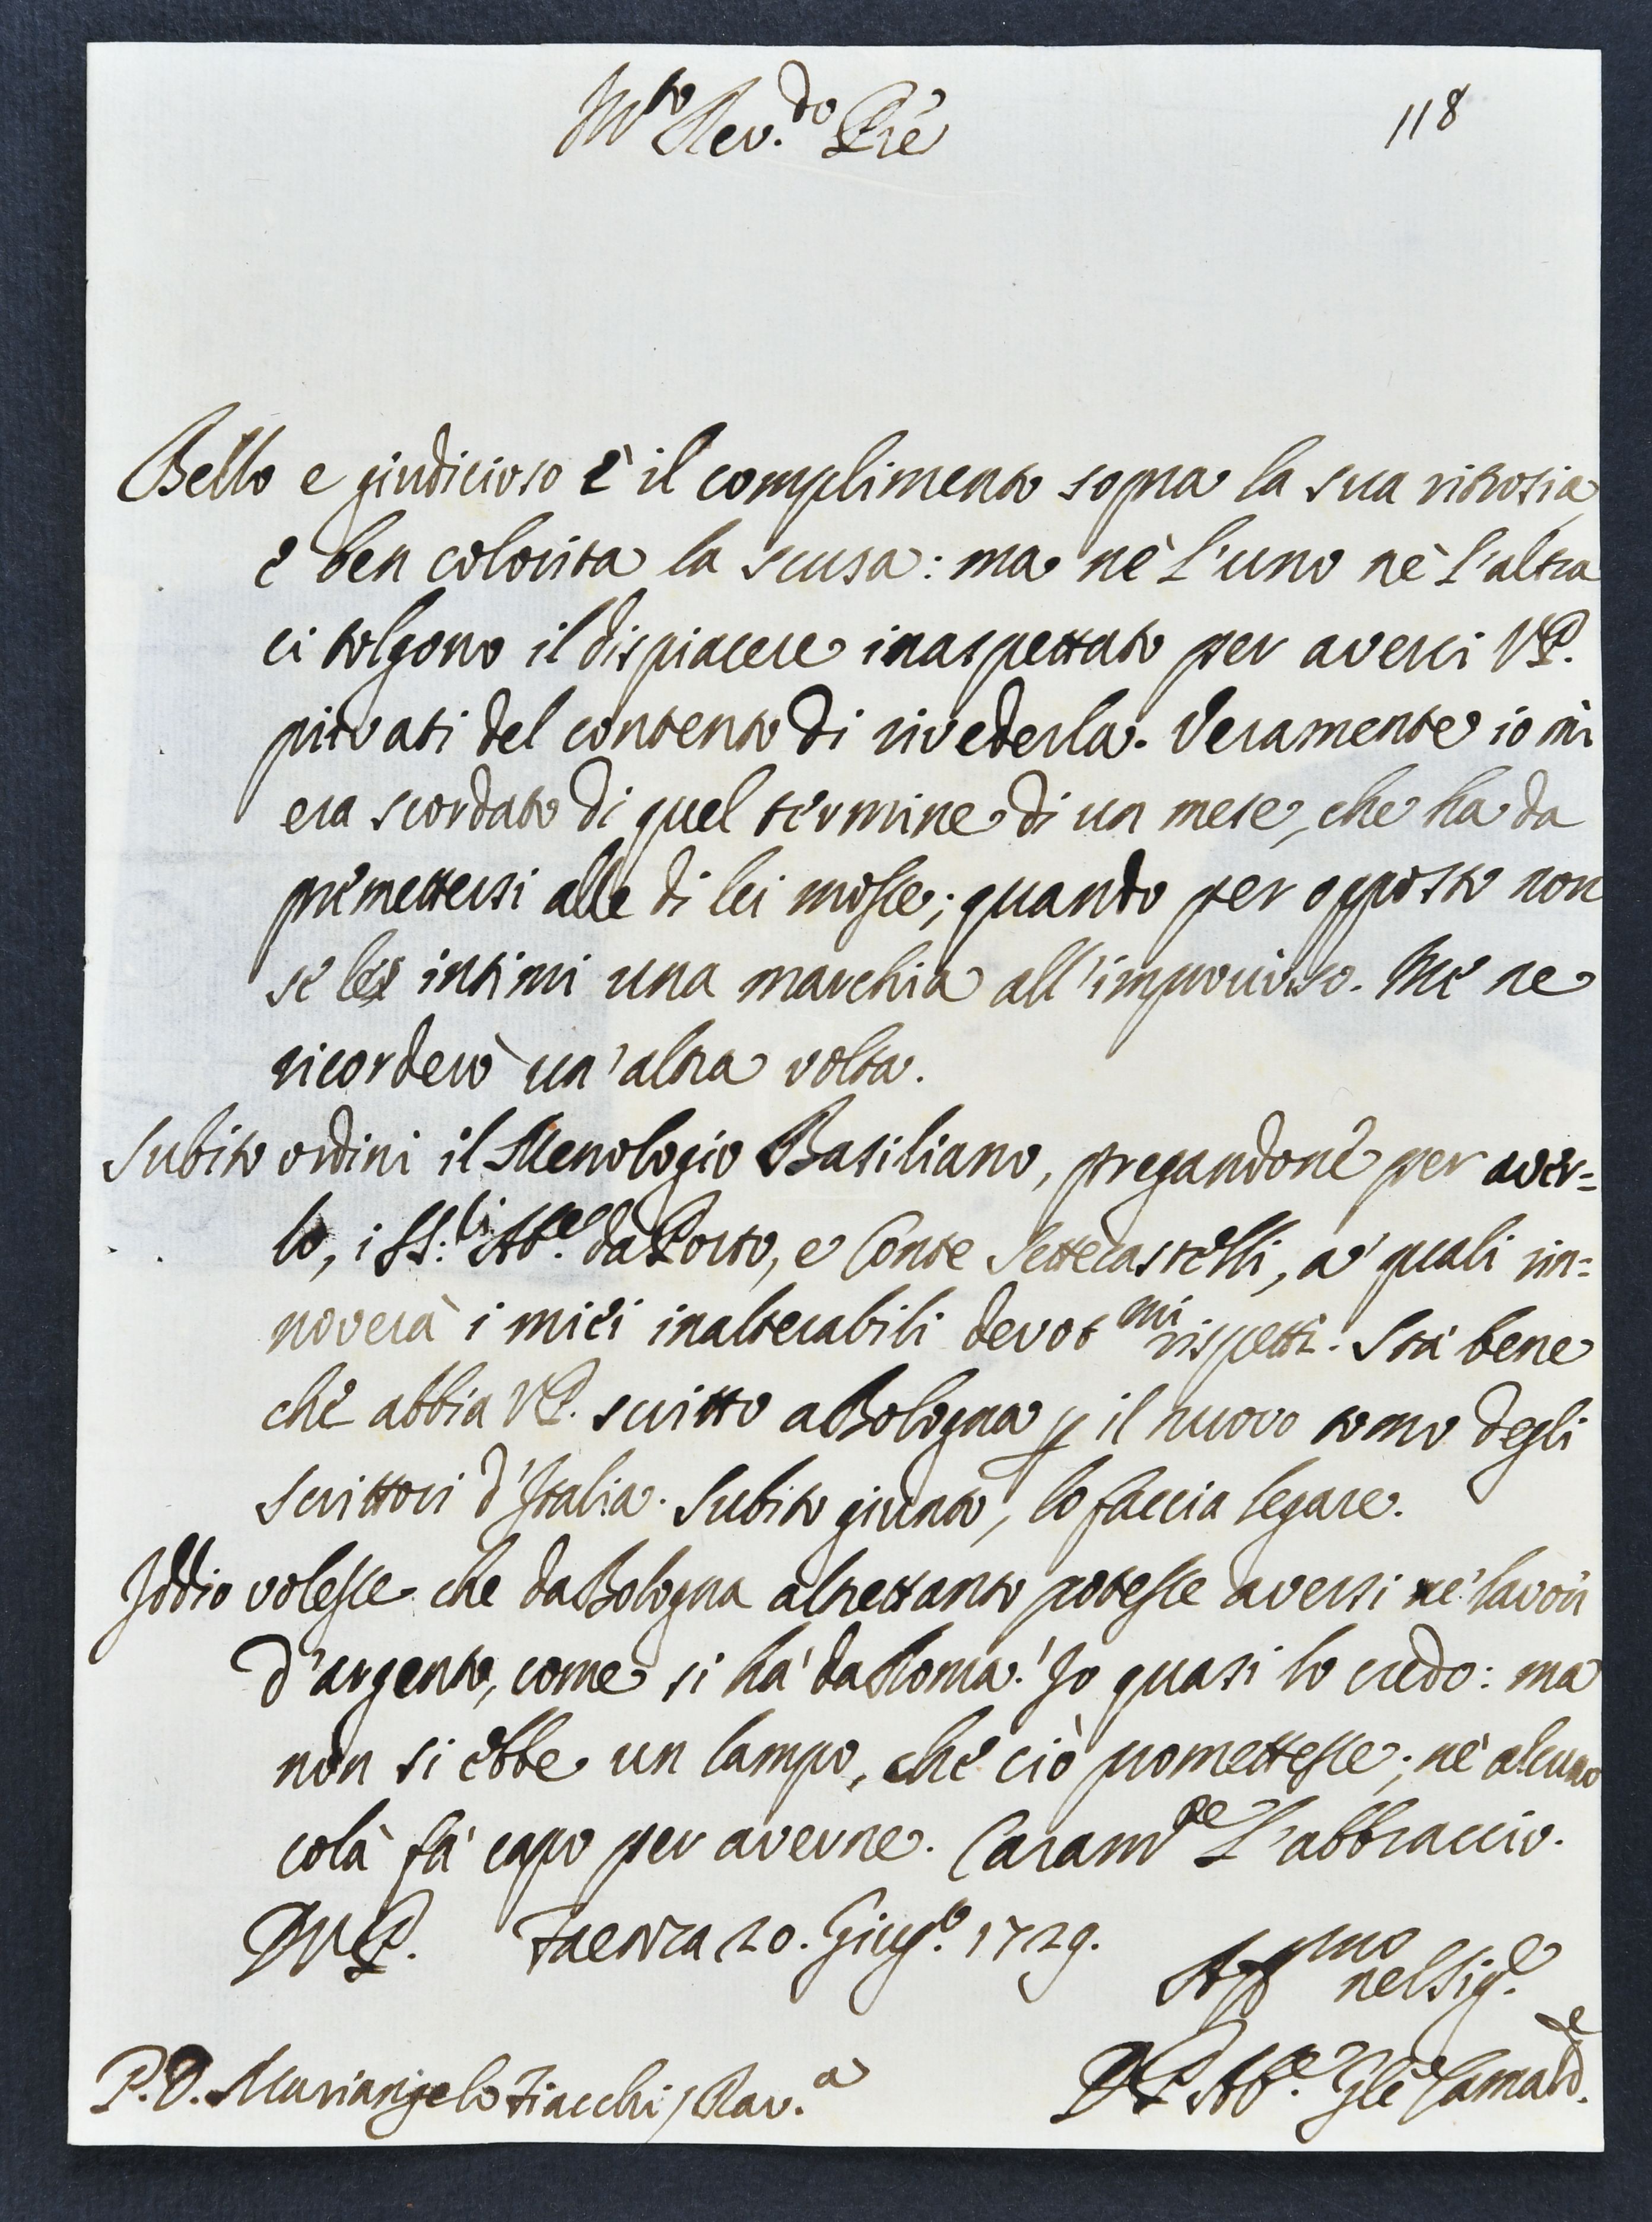 Mto Rev.do Prē
118
Bello e giudicioso è il complimento sopra la sua ritrosia,
e ben colorita la scusa: ma nè l'uno nè l'altra
ci tolgono il dispiacere inaspettato per averci VP.
privati del contento di rivederla. Veramente io m'
era scordato di quel termine di un mese, che ha da
premettersi alle di lei mosse; quando per opposto non
se le intimi una marchia all'improviso. Me ne
ricorderò un'altra volta.
Subito ordini il Menologio Basiliano, pregandone per aver=
lo, i SS.li Abe. da Porto, e Conte Settecastelli, a' quali rin=
noverà i miei inalterabili devotmi rispetti. Stà bene
che abbia VP. scritto a Bologna p il nuovo tomo degli
Scrittori d'Italia. Subito giunto, lo faccia legare.
Iddio volesse che da Bologna altrettanto potesse aversi ne' lavori
d'argento, come si hà da Roma! Io quasi lo credo: ma
non si ebbe un lampo, che ciò promettesse; nè alcuno
colà fà capo per averne. Caramte L'abbraccio.
DVP. Faenza 20. Giugo. 1729.
Affmo nel Sige.
P. D. Mariangelo Fiacchi / Rav.a
DP Abe. Gle Camalde.